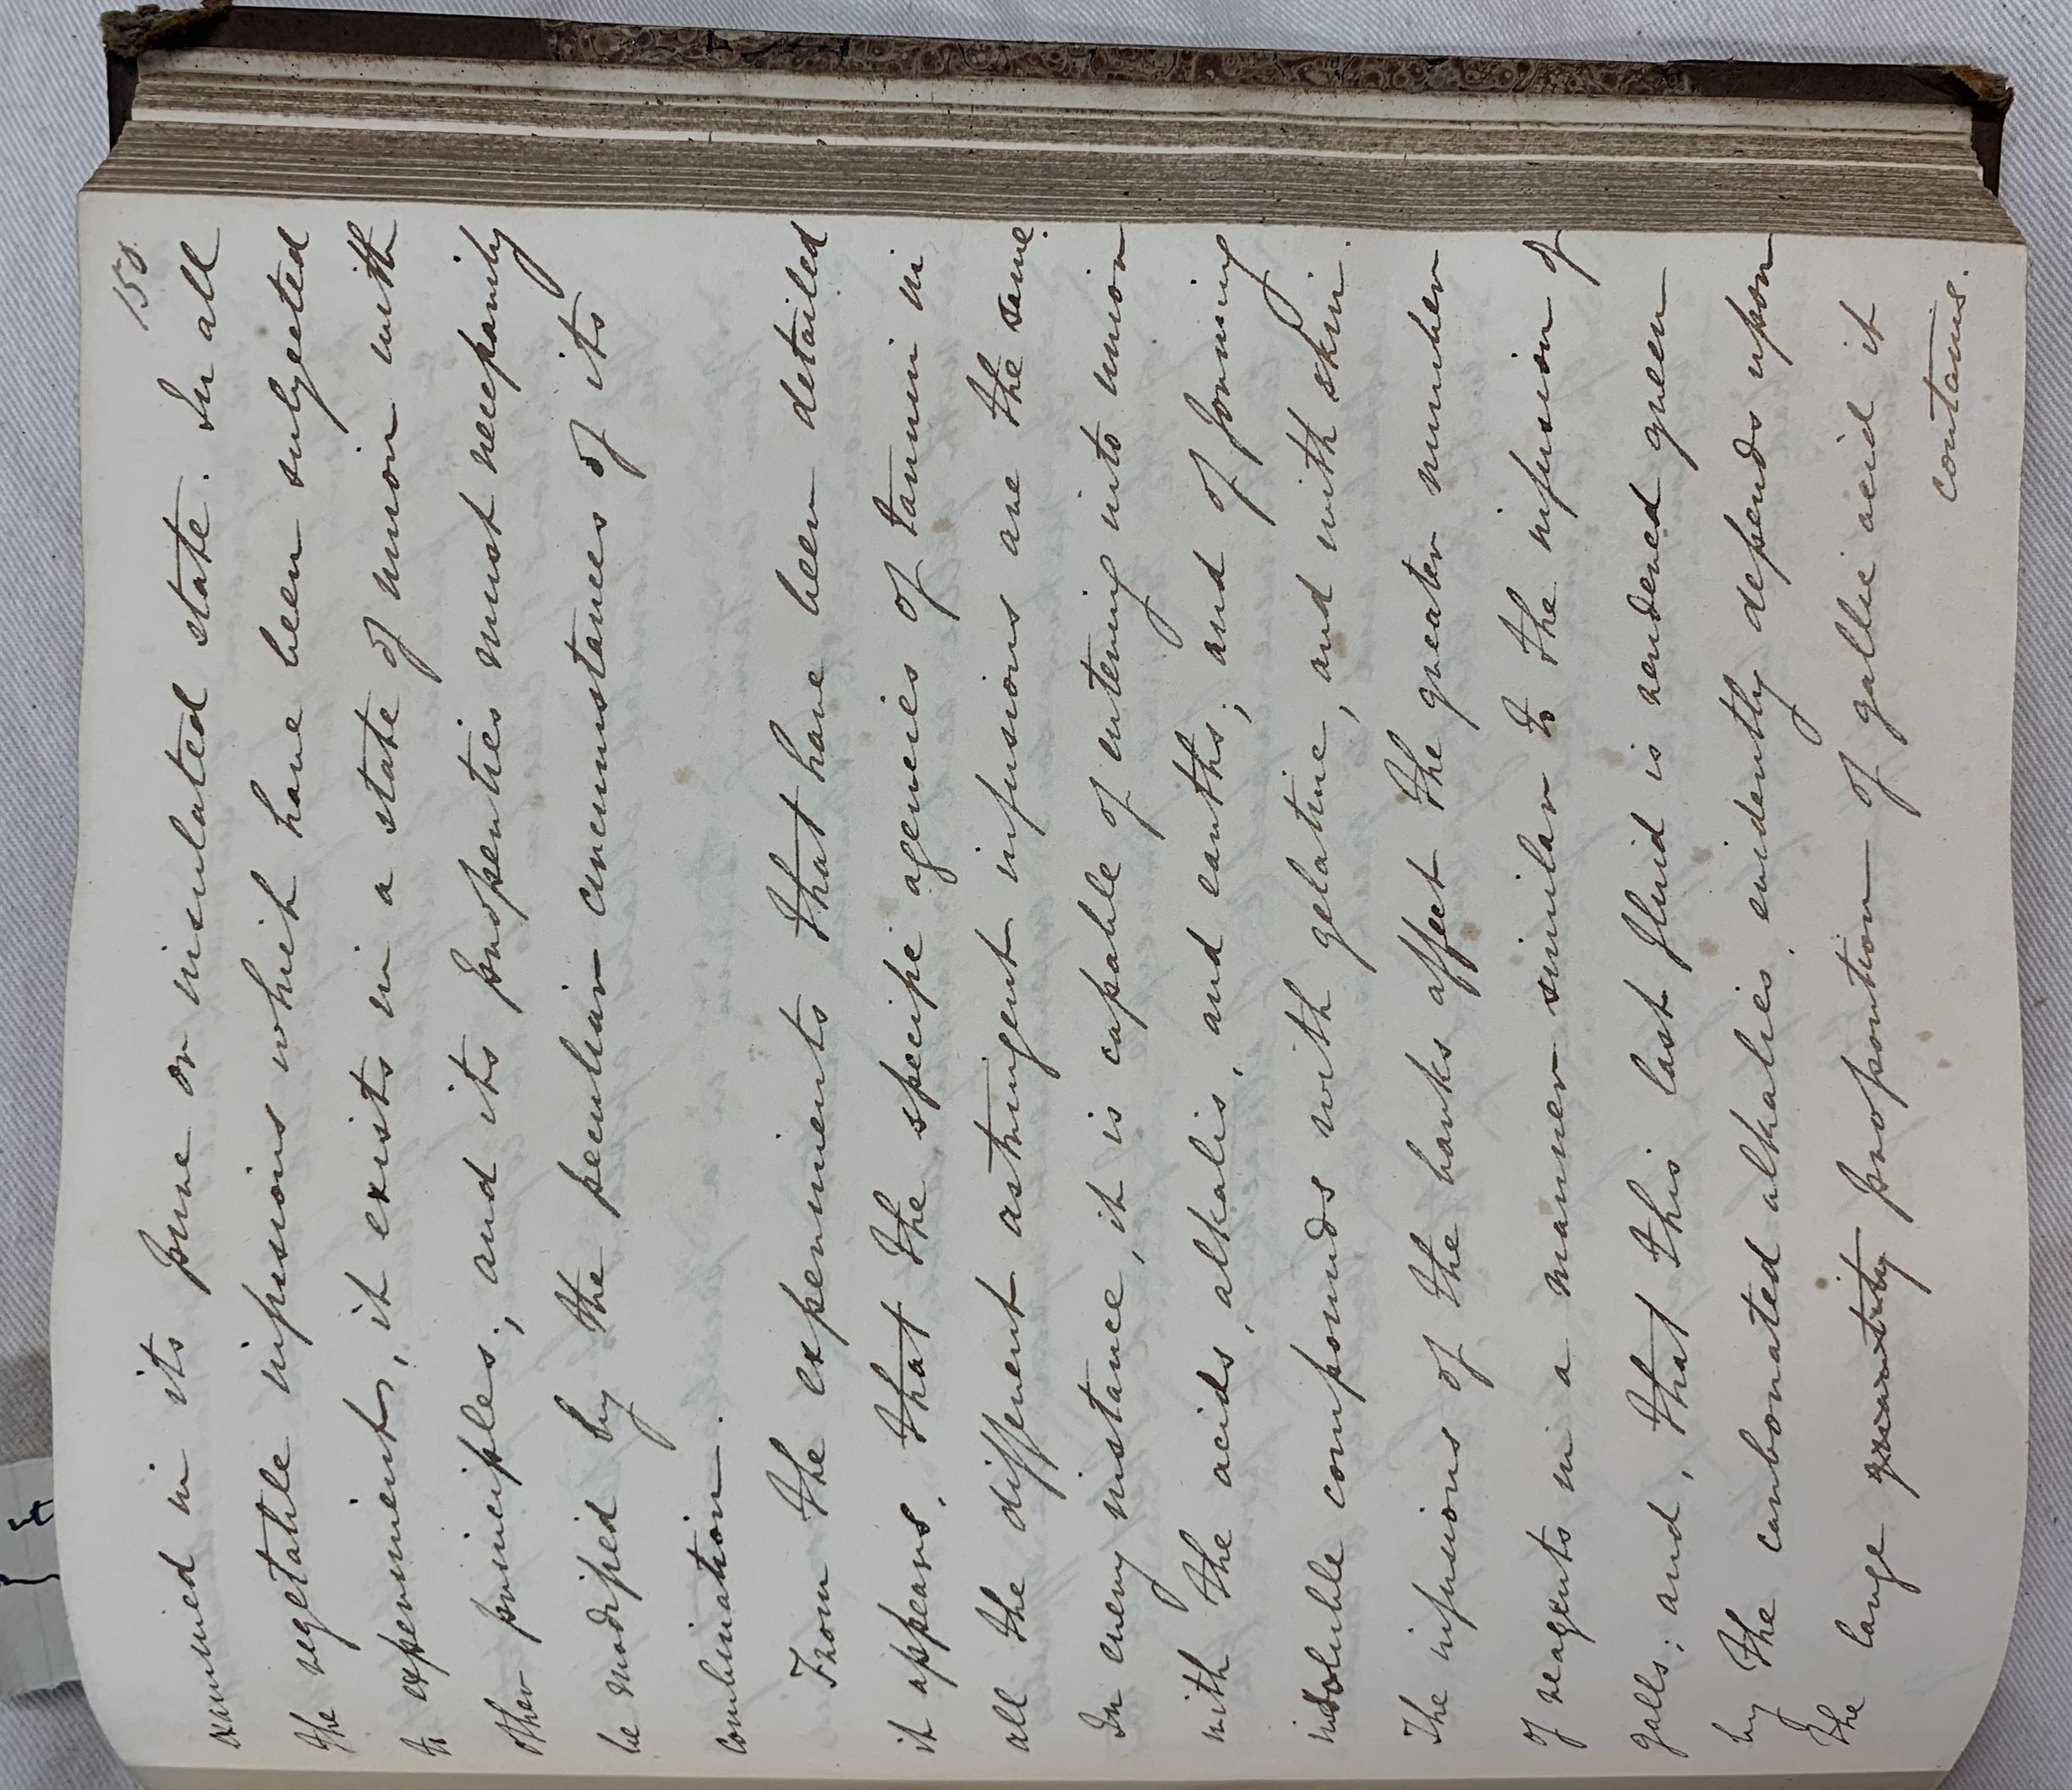 158.
examined in its pure or insulated state. In all
the vegetable infusions which have been subjected
to experiment, it exists in a state of union with
other principles; and its properties must necessarily
be modified by the peculiar circumstances of its
combination.
From the experiments that have been detailed
it appears, that the specific agencies of tannin in
all the different astringent infusions are the same.
In every instance, it is capable of entering into union
with the acids, alkalis, and earths; and of forming
insoluble compounds with gelatine, and with skin.
The infusions of the barks affect the greater number
of reagents in a manner similar to the infusion of
galls; and, that this last fluid is rendered green
by the carbonated alkalies, evidently depends upon
the large quantity proportion of gallic acid it
contains.